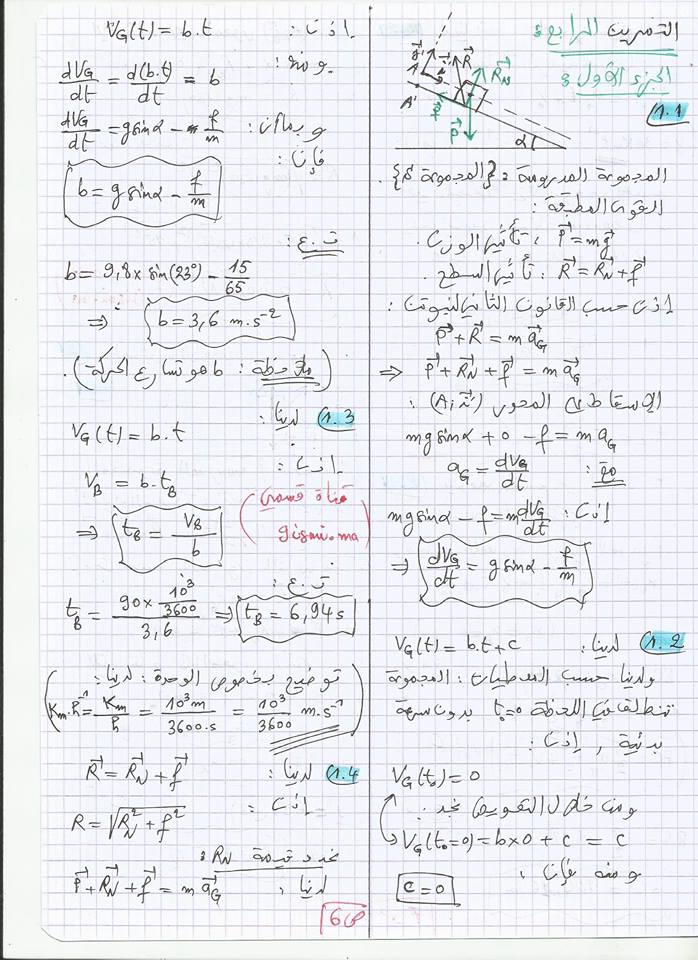 التمرين الرابع :
الجزء الأول :
1.1
المجموعة المدروسة : {المجموعة S}
القوى المطبقة :
P⃗ = mg⃗ : تأثير الوزن.
R⃗ = R⃗N + f⃗ : تأثير السطح.
إذن حسب القانون الثاني لنيوتن :
P⃗ + R⃗ = m a⃗G
⇒ P⃗ + R⃗N + f⃗ = m a⃗G
الإسقاط على المحور (A, i⃗) :
mg sinα + 0 - f = m aG
مع : aG = dVG/dt
إذن : mg sinα - f = m dVG/dt
⇒ dVG/dt = g sinα - f/m
1.2 لدينا : VG(t) = b.t + c
ولدينا حسب المعطيات : المجموعة
تنطلق في اللحظة t0=0 بدون سرعة
بدئية , إذن :
VG(t0) = 0
ومن خلال التعويض نجد :
VG(t0=0) = b×0 + c = c
ومنه فإن :
c = 0
إذن : VG(t) = b.t
ومنه : dVG/dt = d(b.t)/dt = b
وبما أن : dVG/dt = g sinα - f/m
فإن :
b = g sinα - f/m
ت.ع :
b = 9,8 × sin(23°) - 15/65
⇒ b = 3,6 m.s⁻²
(ملاحظة : b هو تسارع الحركة).
1.3 لدينا :
VG(t) = b.t
إذن :
VB = b.tB
⇒ tB = VB/b
قناة قسمي
9ismi.ma
ت.ع :
tB = (90 × 10³/3600)/3,6 ⇒ tB = 6,94 s
توضيح بخصوص الوحدة : لدينا :
Km.h⁻¹ = Km/h = 10³m/3600.s = 10³/3600 m.s⁻¹
1.4 لدينا : R⃗ = R⃗N + f⃗
إذن :
R = √(RN² + f²)
نحدد قيمة RN :
لدينا : P⃗ + R⃗N + f⃗ = m a⃗G
ص6